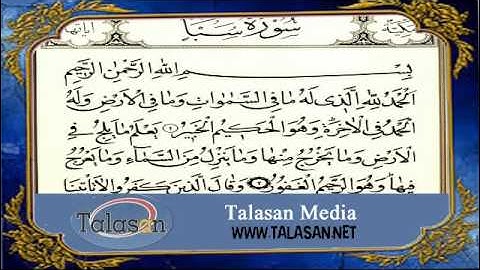 سورة سبا
مكية
بسم الله الرحمن الرحيم
الحمد لله الذي له ما في السموات وما في الأرض وله
الحمد في الآخرة وهو الحكيم الخبير يعلم ما يلج في
الأرض وما يخرج منها وما ينزل من السماء وما يعرج
فيها وهو الرحيم الغفور وقال الذين كفروا لا تأتينا
Talasan
Talasan Media
WWW.TALASAN.NET